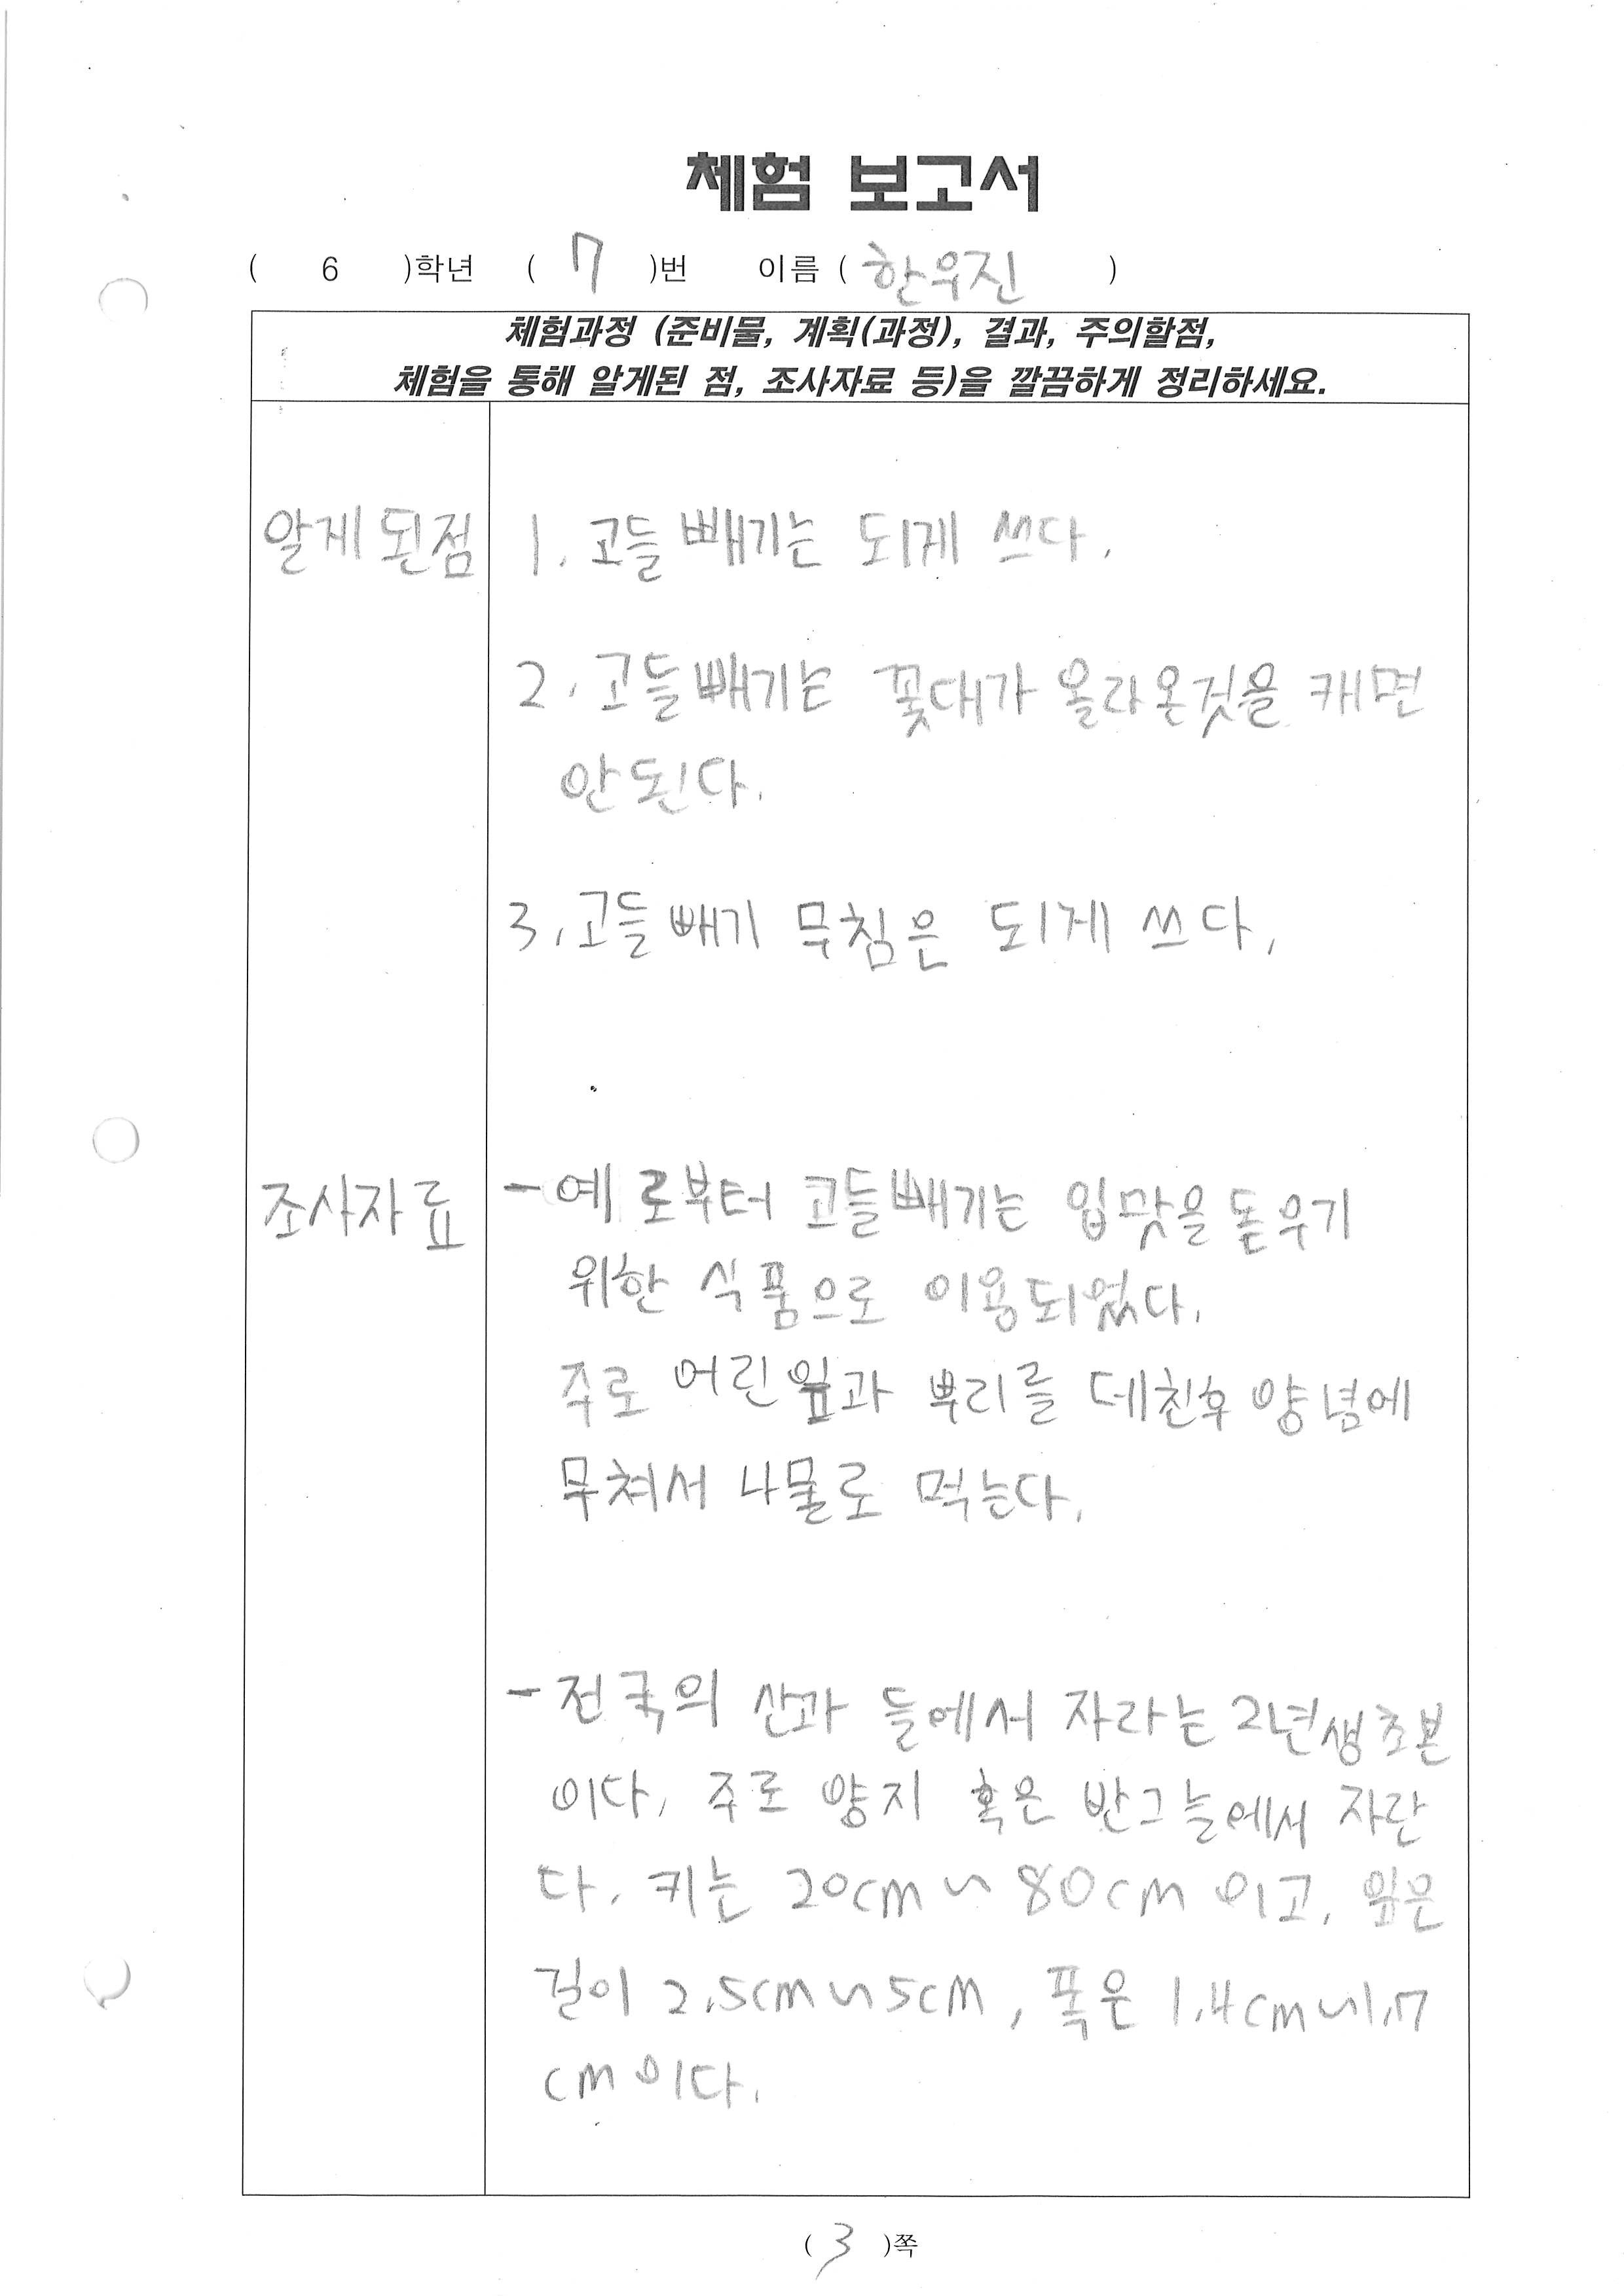 체험 보고서
( 6 )학년 ( 7 )번 이름 ( 한우진 )
체험과정 (준비물, 계획(과정), 결과, 주의할점,
체험을 통해 알게된 점, 조사자료 등)을 깔끔하게 정리하세요.
알게 된점 1. 고들빼기는 되게 쓰다.
2. 고들빼기는 꽃대가 올라온것을 캐면
안된다.
3. 고들빼기 무침은 되게 쓰다.
조사자료 - 예로부터 고들빼기는 입맛을 돋우기
위한 식품으로 이용되었다.
주로 어린잎과 뿌리를 데친후 양념에
무쳐서 나물로 먹는다.
- 전국의 산과 들에서 자라는 2년생초본
이다. 주로 양지 혹은 반그늘에서 자란
다. 키는 20cm ~ 80cm 이고, 잎은
길이 2.5cm~5cm, 폭은 1.4cm~1.7
cm이다.
( 3 )쪽